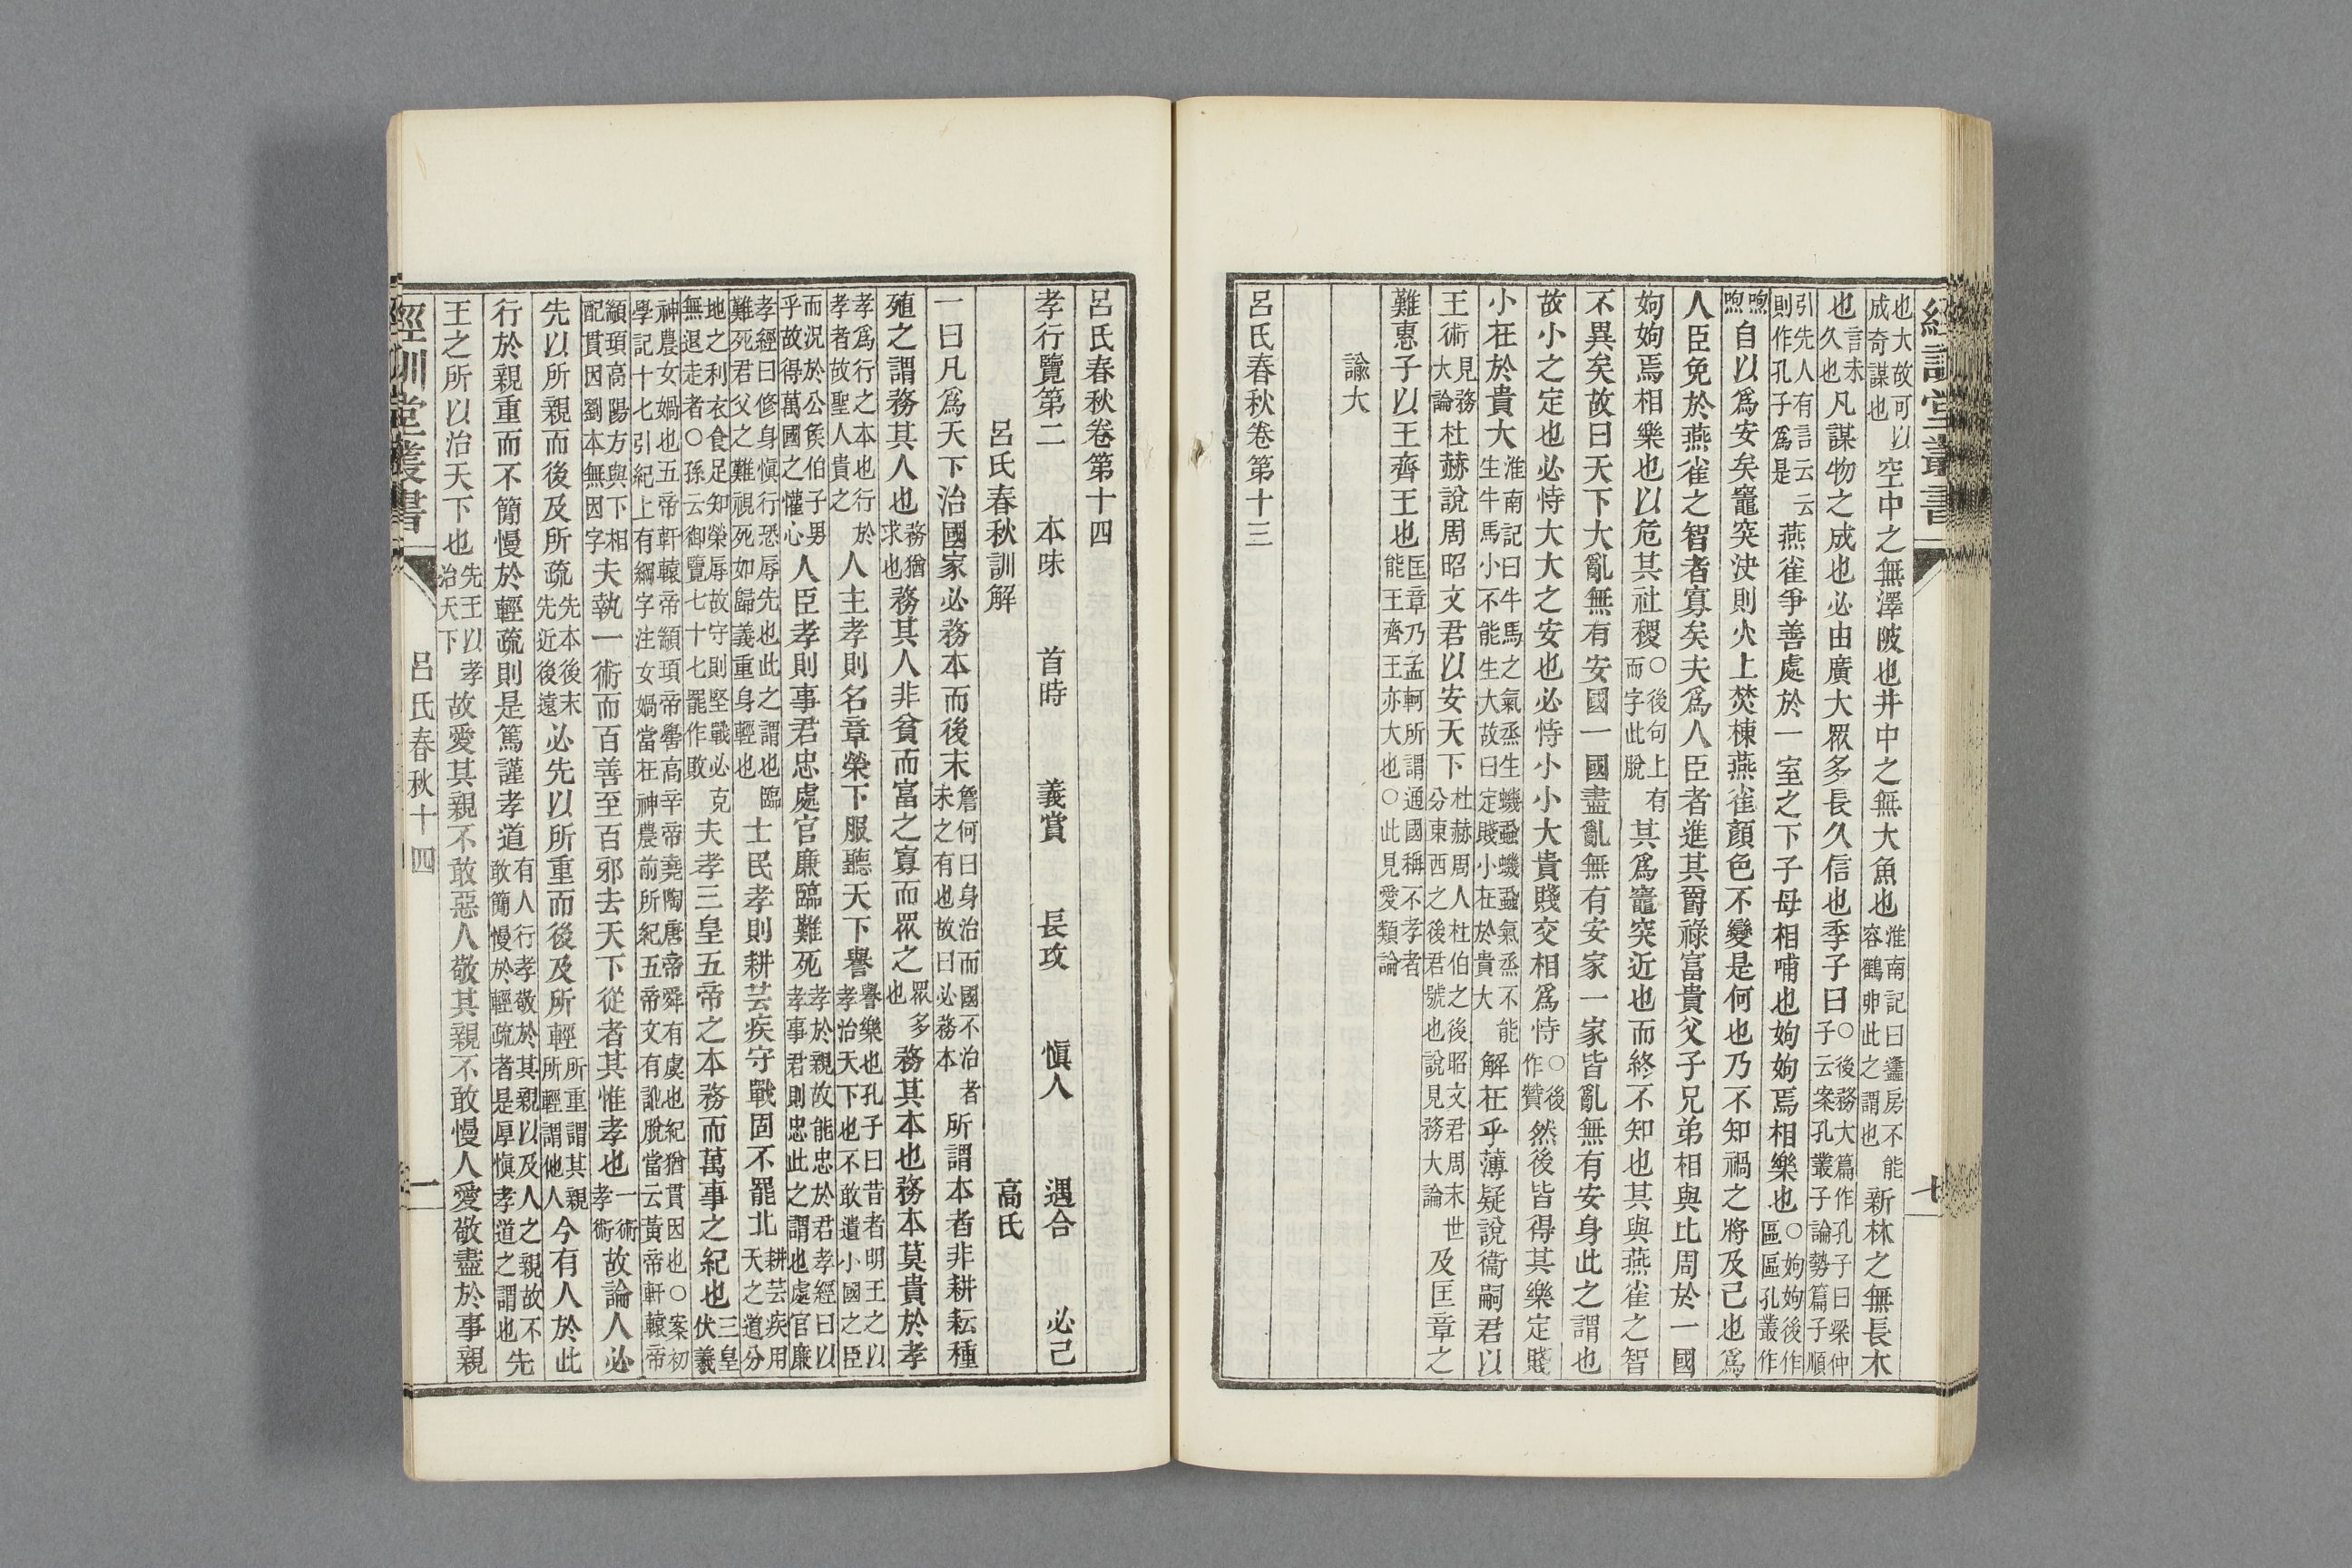 經訓堂叢書 七
也大故可以成奇謀也空中之無澤陂也井中之無大魚也淮南記曰蠭房不能容鶴卵此之謂也新林之無長木
也言未久也凡謀物之成也必由廣大眾多長久信也季子曰○後務大篇作孔子曰梁仲子云案孔叢子論勢篇子順
引先人有言云云則作孔子爲是燕雀爭善處於一室之下子母相哺也姁姁焉相樂也○姁姁後作區區孔叢作
喣喣自以爲安矣竈突決則火上焚棟燕雀顏色不變是何也乃不知禍之將及己也爲
人臣免於燕雀之智者寡矣夫爲人臣者進其爵祿富貴父子兄弟相與比周於一國
姁姁焉相樂也以危其社稷○後句上有而字此脫其爲竈突近也而終不知也其與燕雀之智
不異矣故曰天下大亂無有安國一國盡亂無有安家一家皆亂無有安身此之謂也
故小之定也必恃大大之安也必恃小小大貴賤交相爲恃○後作贊然後皆得其樂定賤
小在於貴大淮南記曰牛馬之氣烝生蟣蝨蟣蝨氣烝不能生牛馬小不能生大故曰定賤小在於貴大解在乎薄疑說衞嗣君以
王術見務大論杜赫說周昭文君以安天下杜赫周人杜伯之後昭文君周末世分東西之後君號也說見務大論及匡章之
難惠子以王齊王也匡章乃孟軻所謂通國稱不孝者能王齊王亦大也○此見愛類論
諭大
呂氏春秋卷第十三
呂氏春秋卷第十四
孝行覽第二 本味 首時 義賞 長攻 愼人 遇合 必己
呂氏春秋訓解 高氏
一曰凡爲天下治國家必務本而後末詹何曰身治而國不治者未之有也故曰必務本所謂本者非耕耘種
殖之謂務其人也務猶求也務其人非貧而富之寡而眾之眾多也務其本也務本莫貴於孝
孝爲行之本也行於孝者故聖人貴之人主孝則名章榮下服聽天下譽譽樂也孔子曰昔者明王之以孝治天下也不敢遺小國之臣
而況於公侯伯子男乎故得萬國之懽心人臣孝則事君忠處官廉臨難死孝於親故能忠於君孝經曰以孝事君則忠此之謂也處官廉
孝經曰修身愼行恐辱先也此之謂也臨難死君父之難視死如歸義重身輕也士民孝則耕芸疾守戰固不罷北耕芸疾用天之道分
地之利衣食足知榮辱故守則堅戰必克無退走者○孫云御覽七十七罷作敗夫孝三皇五帝之本務而萬事之紀也三皇伏羲
神農女媧也五帝軒轅帝顓頊帝嚳高辛帝堯陶唐帝舜有虞也紀猶貫因也○案初學記十七引紀上有綱字注女媧當在神農前所紀五帝文有訛脫當云黃帝軒轅帝
顓頊高陽方與下相配貫因劉本無因字夫執一術而百善至百邪去天下從者其惟孝也一術孝術故論人必
先以所親而後及所疏先本後末先近後遠必先以所重而後及所輕所重謂其親所輕謂他人今有人於此
行於親重而不簡慢於輕疏則是篤謹孝道有人行孝敬於其親以及人之親故不敢簡慢於輕疏者是厚愼孝道之謂也先
王之所以治天下也先王以孝治天下故愛其親不敢惡人敬其親不敢慢人愛敬盡於事親
經訓堂叢書 呂氏春秋十四 一